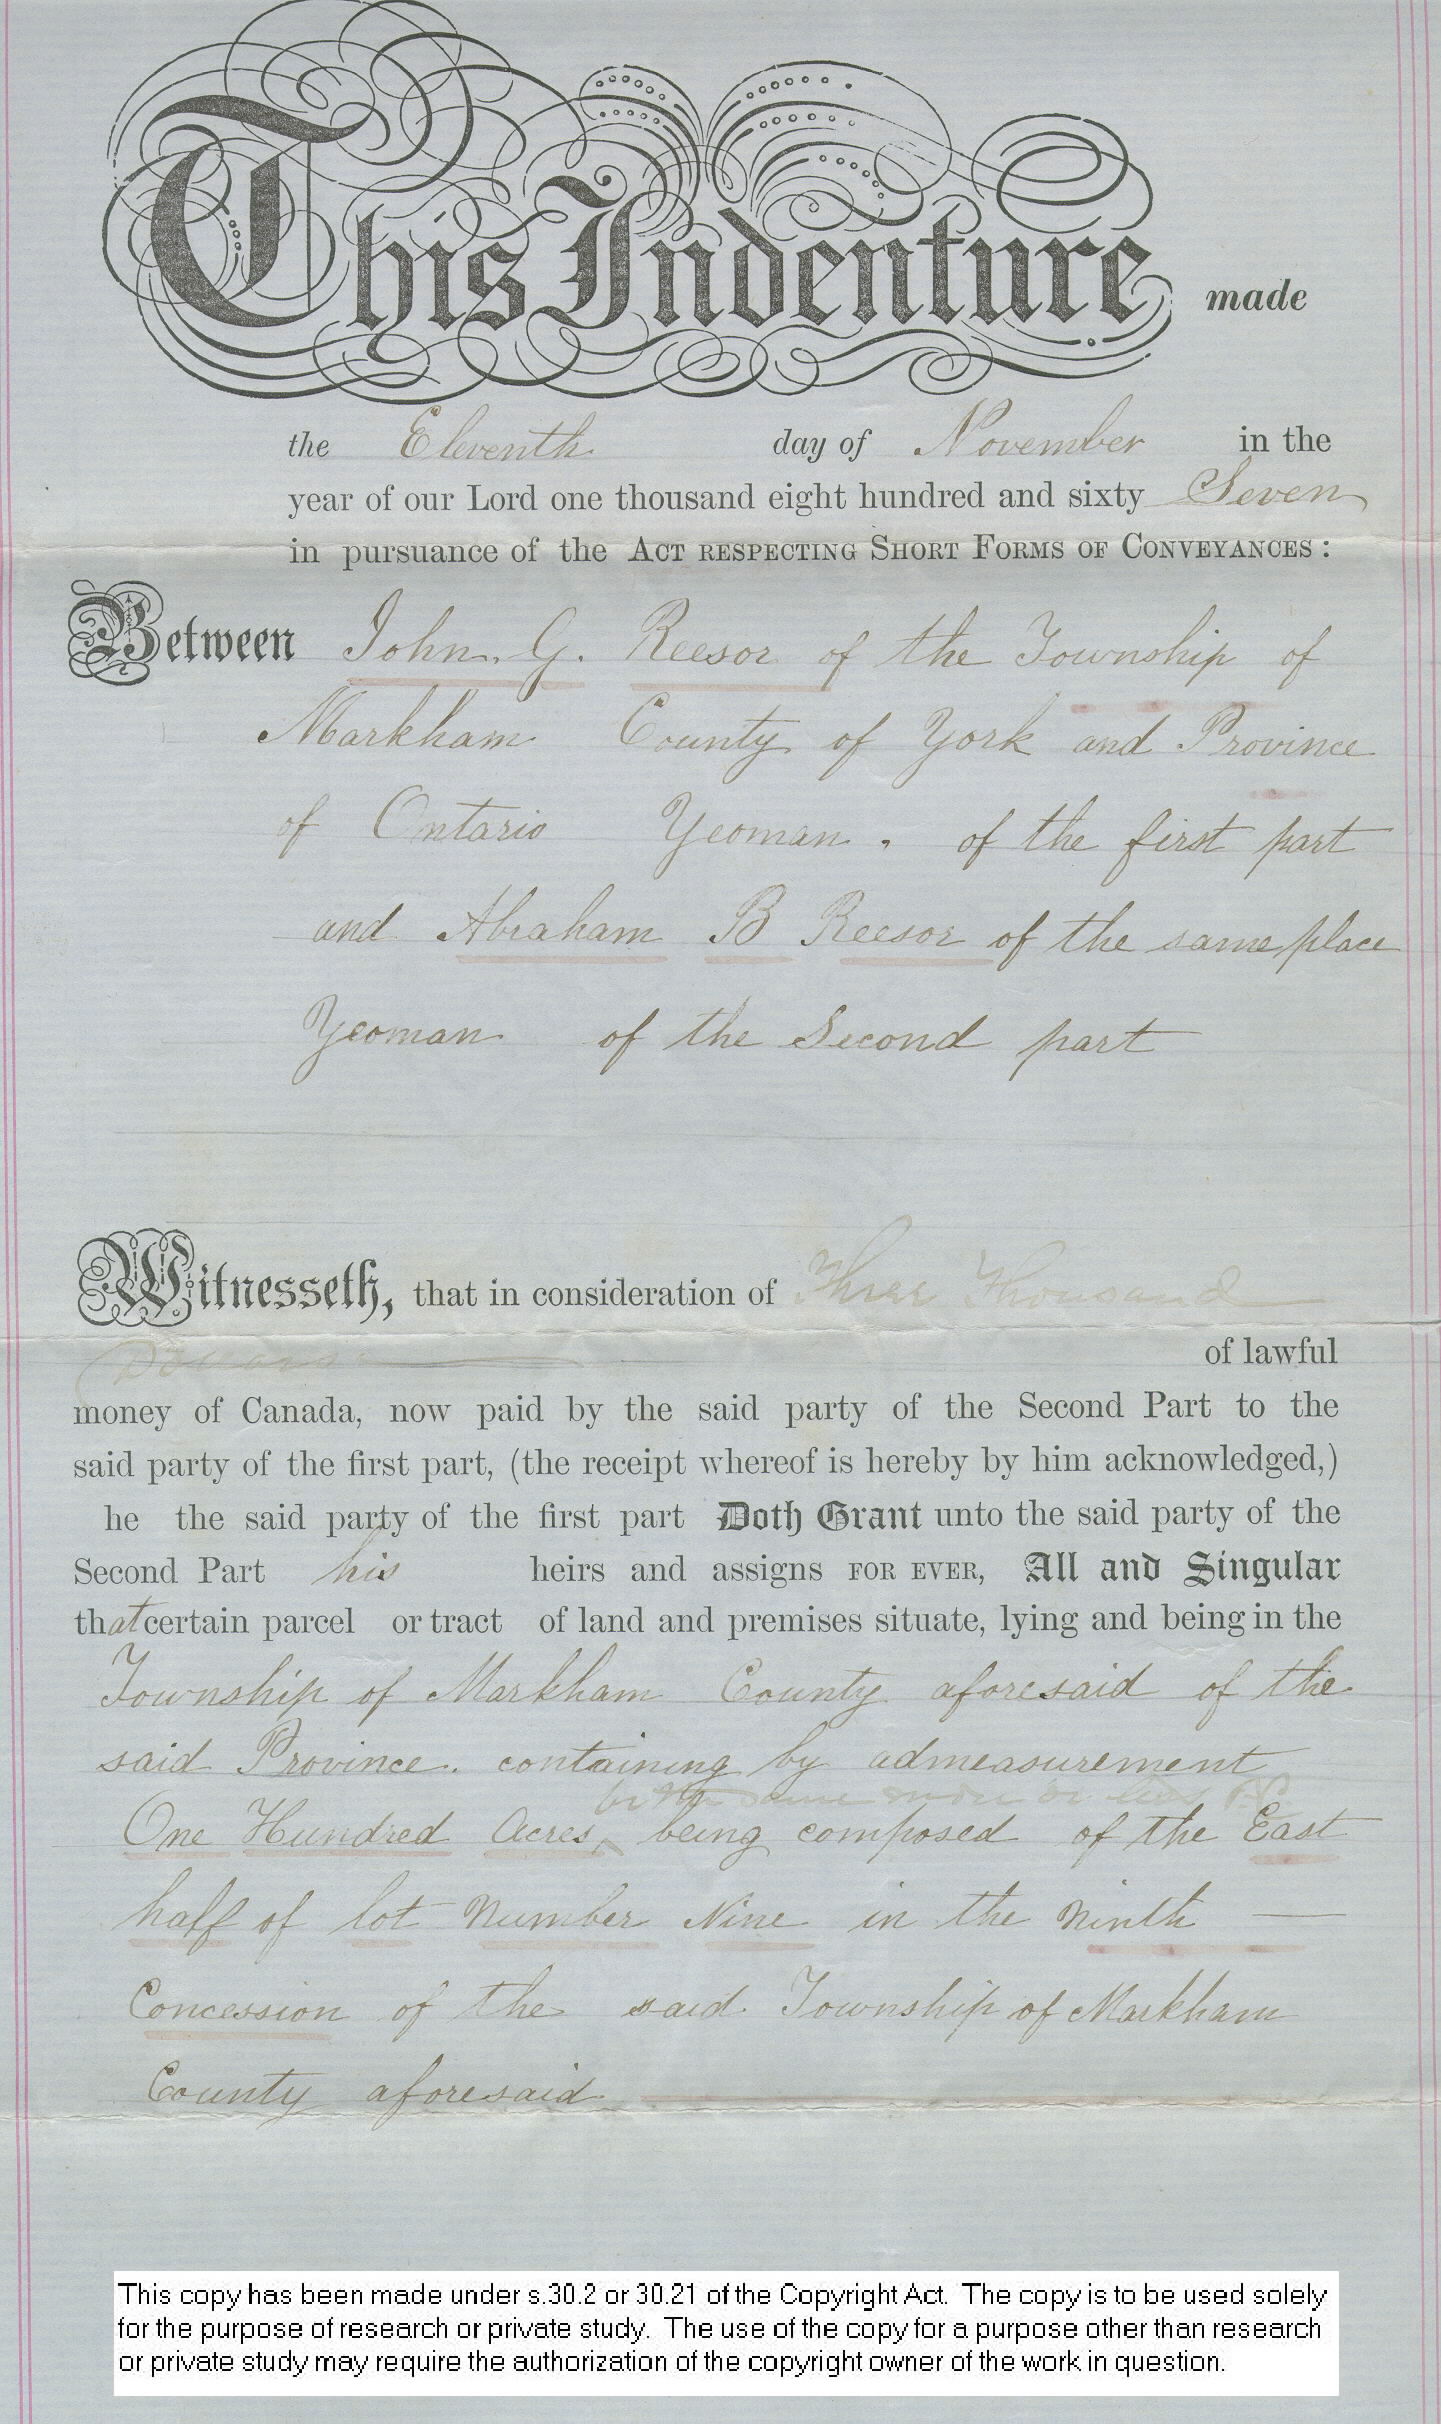 This Indenture made
the Eleventh day of November in the
year of our Lord one thousand eight hundred and sixty Seven
in pursuance of the ACT RESPECTING SHORT FORMS OF CONVEYANCES :
Between John. G. Reesor of the Township of
Markham County of York and Province
of Ontario Yeoman . of the first part
and Abraham B Reesor of the same place
Yeoman of the Second part
Witnesseth, that in consideration of Three Thousand
Dollars of lawful
money of Canada, now paid by the said party of the Second Part to the
said party of the first part, (the receipt whereof is hereby by him acknowledged,)
he the said party of the first part Doth Grant unto the said party of the
Second Part his heirs and assigns FOR EVER, All and Singular
that certain parcel or tract of land and premises situate, lying and being in the
Township of Markham County aforesaid of the
said Province. containing by admeasurement
be the same more or less
One Hundred Acres being composed of the East
half of lot Number Nine in the Ninth —
Concession of the said Township of Markham
County aforesaid
This copy has been made under s.30.2 or 30.21 of the Copyright Act. The copy is to be used solely
for the purpose of research or private study. The use of the copy for a purpose other than research
or private study may require the authorization of the copyright owner of the work in question.